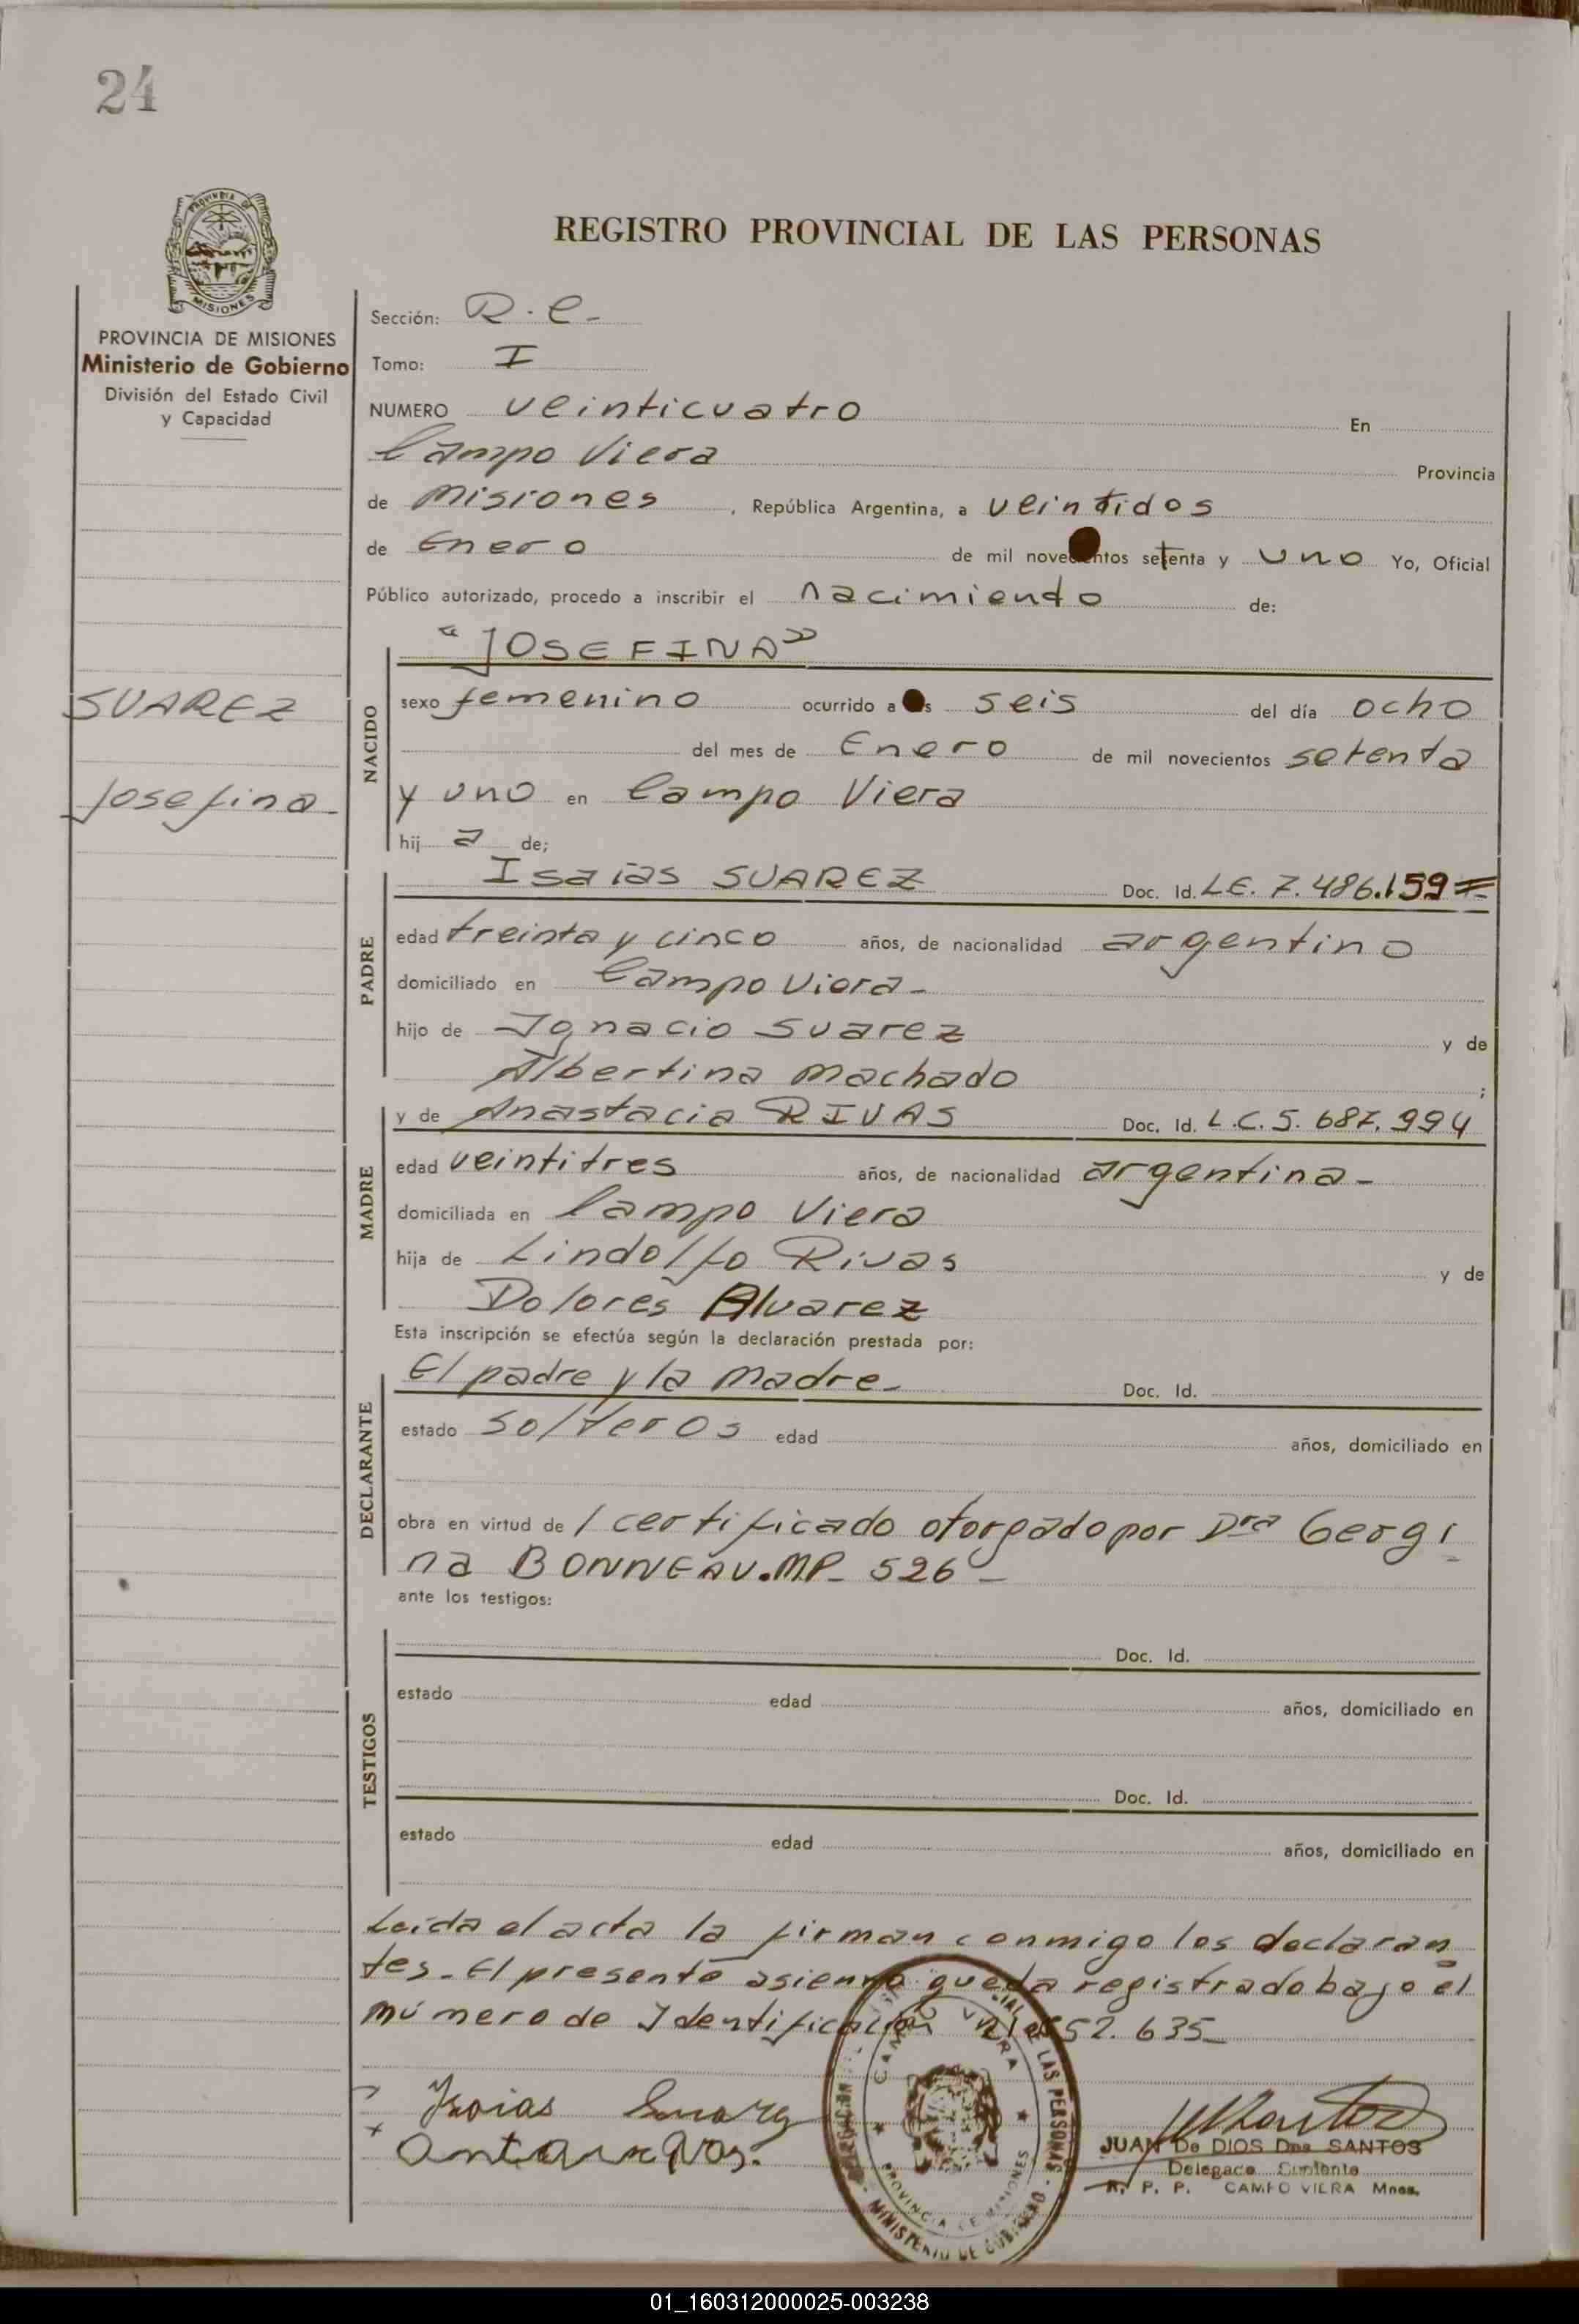 24
PROVINCIA DE
MISIONES
PROVINCIA DE MISIONES
Ministerio de Gobierno
División del Estado Civil
y Capacidad
SUAREZ
Josefina
REGISTRO PROVINCIAL DE LAS PERSONAS
Sección: R.C.
Tomo: I
NUMERO veinticuatro En
Campo Viera Provincia
de Misiones, República Argentina, a veintidos
de Enero de mil novecientos setenta y uno Yo, Oficial
Público autorizado, procedo a inscribir el nacimiento de:
NACIDO
"JOSEFINA"
sexo femenino ocurrido a s seis del día ocho
del mes de Enero de mil novecientos setenta
y uno en Campo Viera
hij a de;
PADRE
Isaías SUAREZ Doc. Id. L.E. 7.486.159=
edad treinta y cinco años, de nacionalidad argentino
domiciliado en Campo Viera-
hijo de Ignacio Suarez y de
Albertina Machado ;
MADRE
y de Anastacia RIVAS Doc. Id. L.C. 5.687.994
edad veintitres años, de nacionalidad argentina-
domiciliada en Campo Viera
hija de Lindolfo Rivas y de
Dolores Alvarez
Esta inscripción se efectúa según la declaración prestada por:
DECLARANTE
El padre y la madre- Doc. Id.
estado solteros edad años, domiciliado en
obra en virtud de 1 certificado otorgado por Dra Georgi
na BONNEAU. M.P- 526-
ante los testigos:
TESTIGOS
Doc. Id.
estado edad años, domiciliado en
Doc. Id.
estado edad años, domiciliado en
Leída el acta la firman conmigo los declaran
tes- El presente asiento queda registrado bajo el
número de Identificación 52.635-
Isaias Suarez
CAMPO VIERA
DE LAS PERSONAS
PROVINCIA DE MISIONES
MINISTERIO DE GOBIERNO
JUAN De DIOS Dos SANTOS
Delegado Suplente
R. P. P. CAMPO VIERA Mnes.
01_160312000025-003238